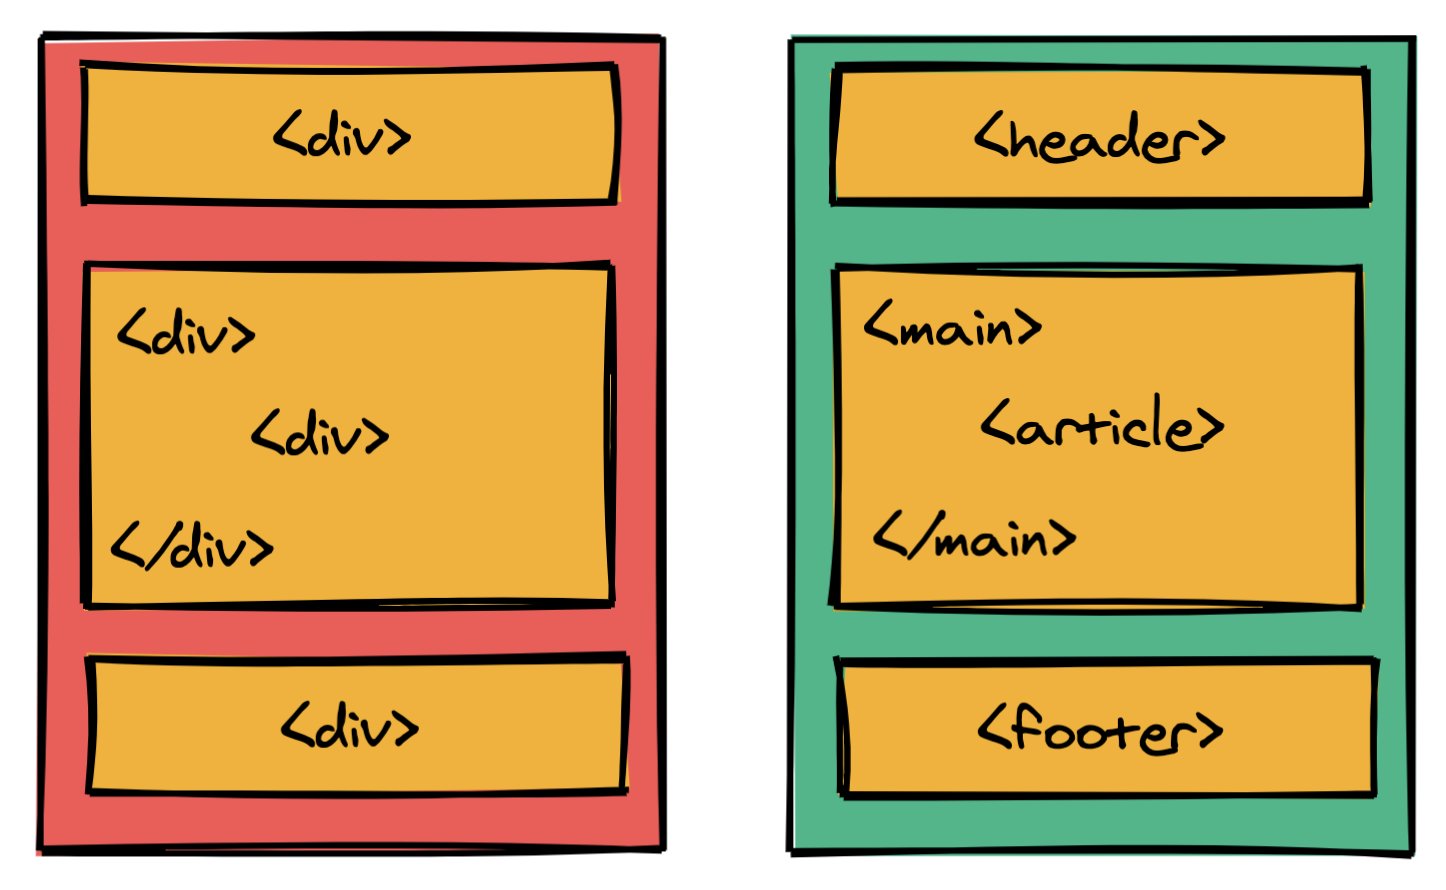 <div>
<div>
<div>
</div>
<div>
<header>
<main>
<article>
</main>
<footer>